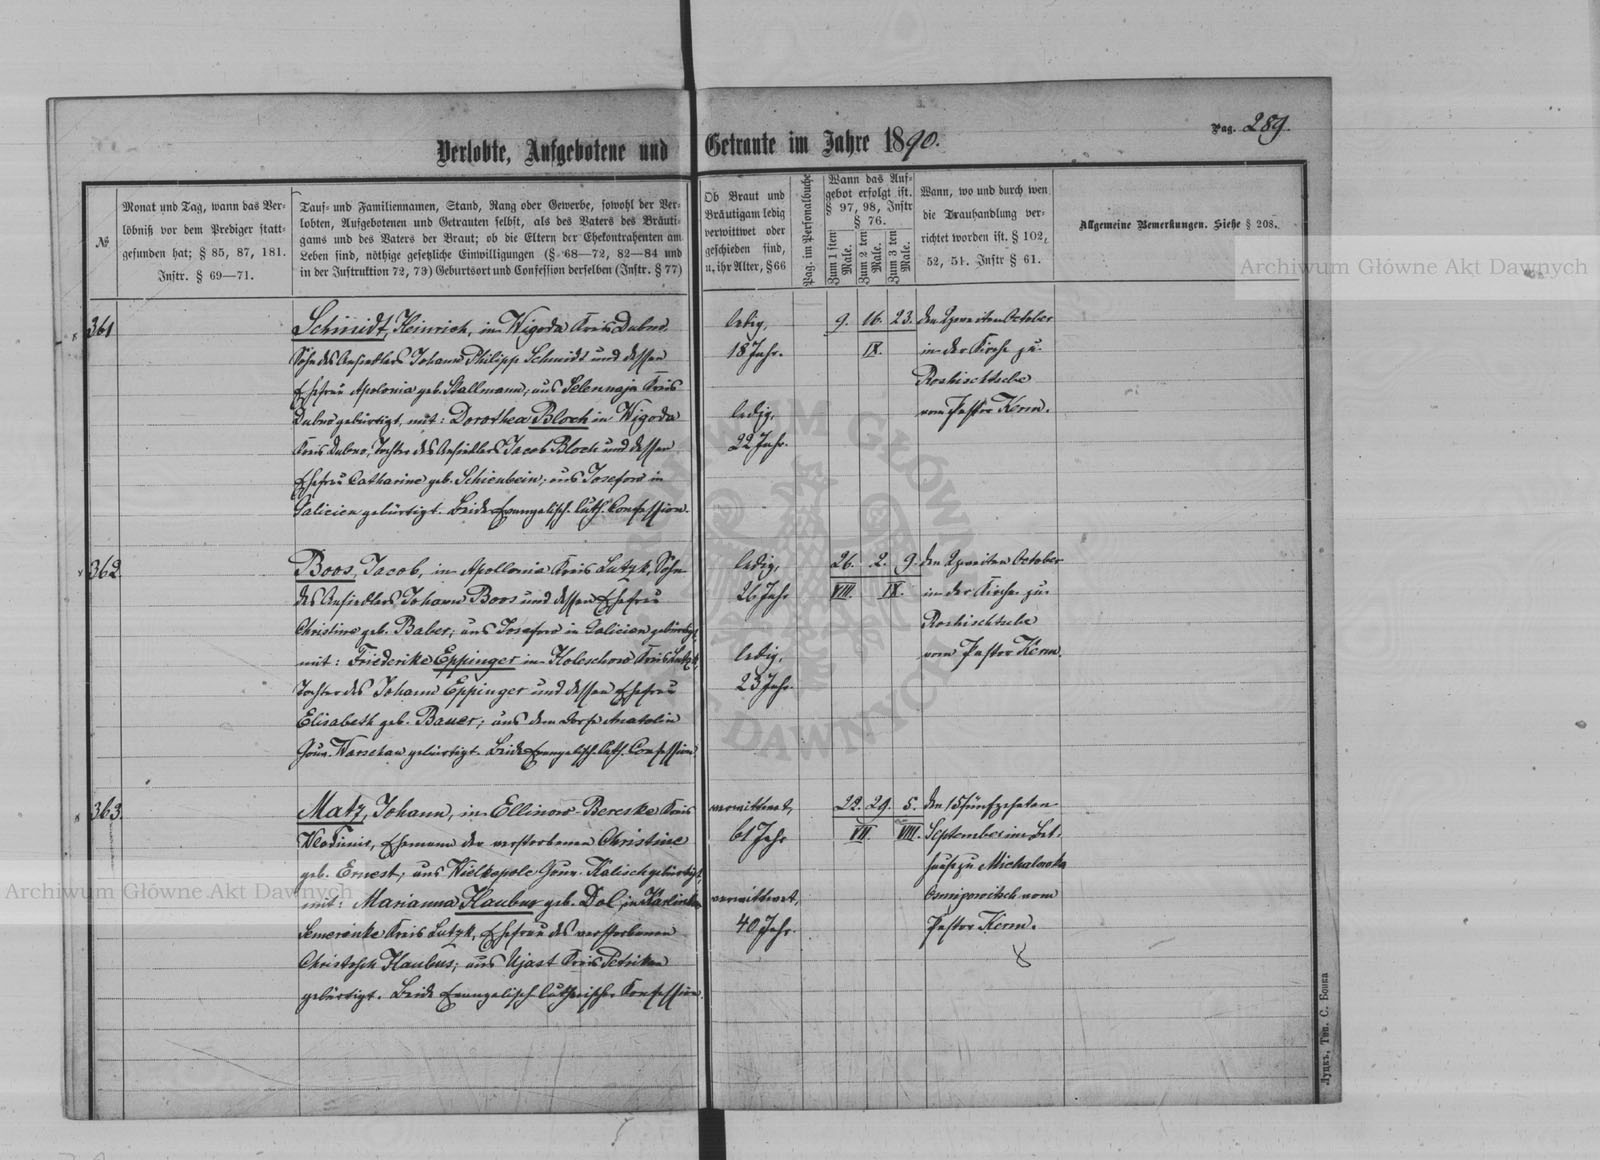 Verlobte, Aufgebotene und Getraute im Jahre 1890.
Pag. 289.
№
Monat und Tag, wann das Ver-
löbniß vor dem Prediger statt-
gefunden hat; § 85, 87, 181.
Instr. § 69—71.
Tauf- und Familiennamen, Stand, Rang oder Gewerbe, sowohl der Ver-
lobten, Aufgebotenen und Getrauten selbst, als des Vaters des Bräuti-
gams und des Vaters der Braut; ob die Eltern der Ehekontrahenten am
Leben sind, nöthige gesetzliche Einwilligungen (§ 68—72, 82—84 und
in der Instruktion 72, 73) Geburtsort und Confession derselben (Instr. § 77)
Ob Braut und
Bräutigam ledig
verwittwet oder
geschieden sind,
u. ihr Alter, § 66
Pag. im Personalbuche
Wann das Auf-
gebot erfolgt ist.
§ 97, 98, Instr
§ 76.
Zum 1 sten Male.
Zum 2 ten Male.
Zum 3 ten Male.
Wann, wo und durch wen
die Trauhandlung ver-
richtet worden ist. § 102,
52, 51. Instr § 61.
Allgemeine Bemerkungen. Siehe § 208.
361
Schmidt, Heinrich, in Wigoda Kreis Dubno
Sohn des Ansiedlers Johann Philipp Schmidt und dessen
Ehefrau Apolonia geb. Stallmann; aus Selennaja Kreis
Dubno gebürtigt, mit: Dorothea Bloch in Wigoda
Kreis Dubno, Tochter des Ansiedlers Jacob Bloch und dessen
Ehefrau Catharine geb. Schienbein; aus Josefow in
Galicien gebürtigt. Beide Evangelisch-Luth. Confession.
ledig,
18 Jahr.
ledig,
22 Jahr.
9. 16. 23.
IX.
den Zweiten October
in der Kirche zu
Roshischtsche
vom Pastor Kerm.
362
Boos, Jacob, in Apollonia Kreis Lutzk, Sohn
des Ansiedlers Johann Boos und dessen Ehefrau
Christine geb. Baber; aus Josefow in Galicien gebürtigt,
mit: Friederike Eppinger in Koleschow Kreis Lutzk,
Tochter des Johann Eppinger und dessen Ehefrau
Elisabeth geb. Bauer; aus dem Dorfe Anatolin
Gouv. Warschau gebürtigt. Beide Evangelisch-Luth. Confession.
ledig,
26 Jahr
ledig,
23 Jahr.
26. 2. 9.
VIII. IX.
den Zweiten October
in der Kirche zu
Roshischtsche
vom Pastor Kerm.
363
Matz, Johann, in Ellinow-Bereske Kreis
Wladimir, Ehemann der verstorbenen Christine
geb. Ernest; aus Wielkopole Gouv. Kalisch gebürtigt,
mit: Marianna Haubus geb. Dol, in
Semerinke Kreis Lutzk, Ehefrau des verstorbenen
Christoph Haubus; aus Ujast Kreis Petrikau
gebürtigt. Beide Evangelisch-Lutherischer Confession.
verwittwet,
61 Jahr
verwittwet,
40 Jahr.
22. 29. 5.
VII. VIII.
den 15 fünfzehnten
September im Bet-
hause zu Michalowka
vom
Pastor Kerm.
Луцкъ, Тип. С. Бокка
Archiwum Główne Akt Dawnych
Archiwum Główne Akt Dawnych
ARCHIWUM GŁÓWNE AKT DAWNYCH